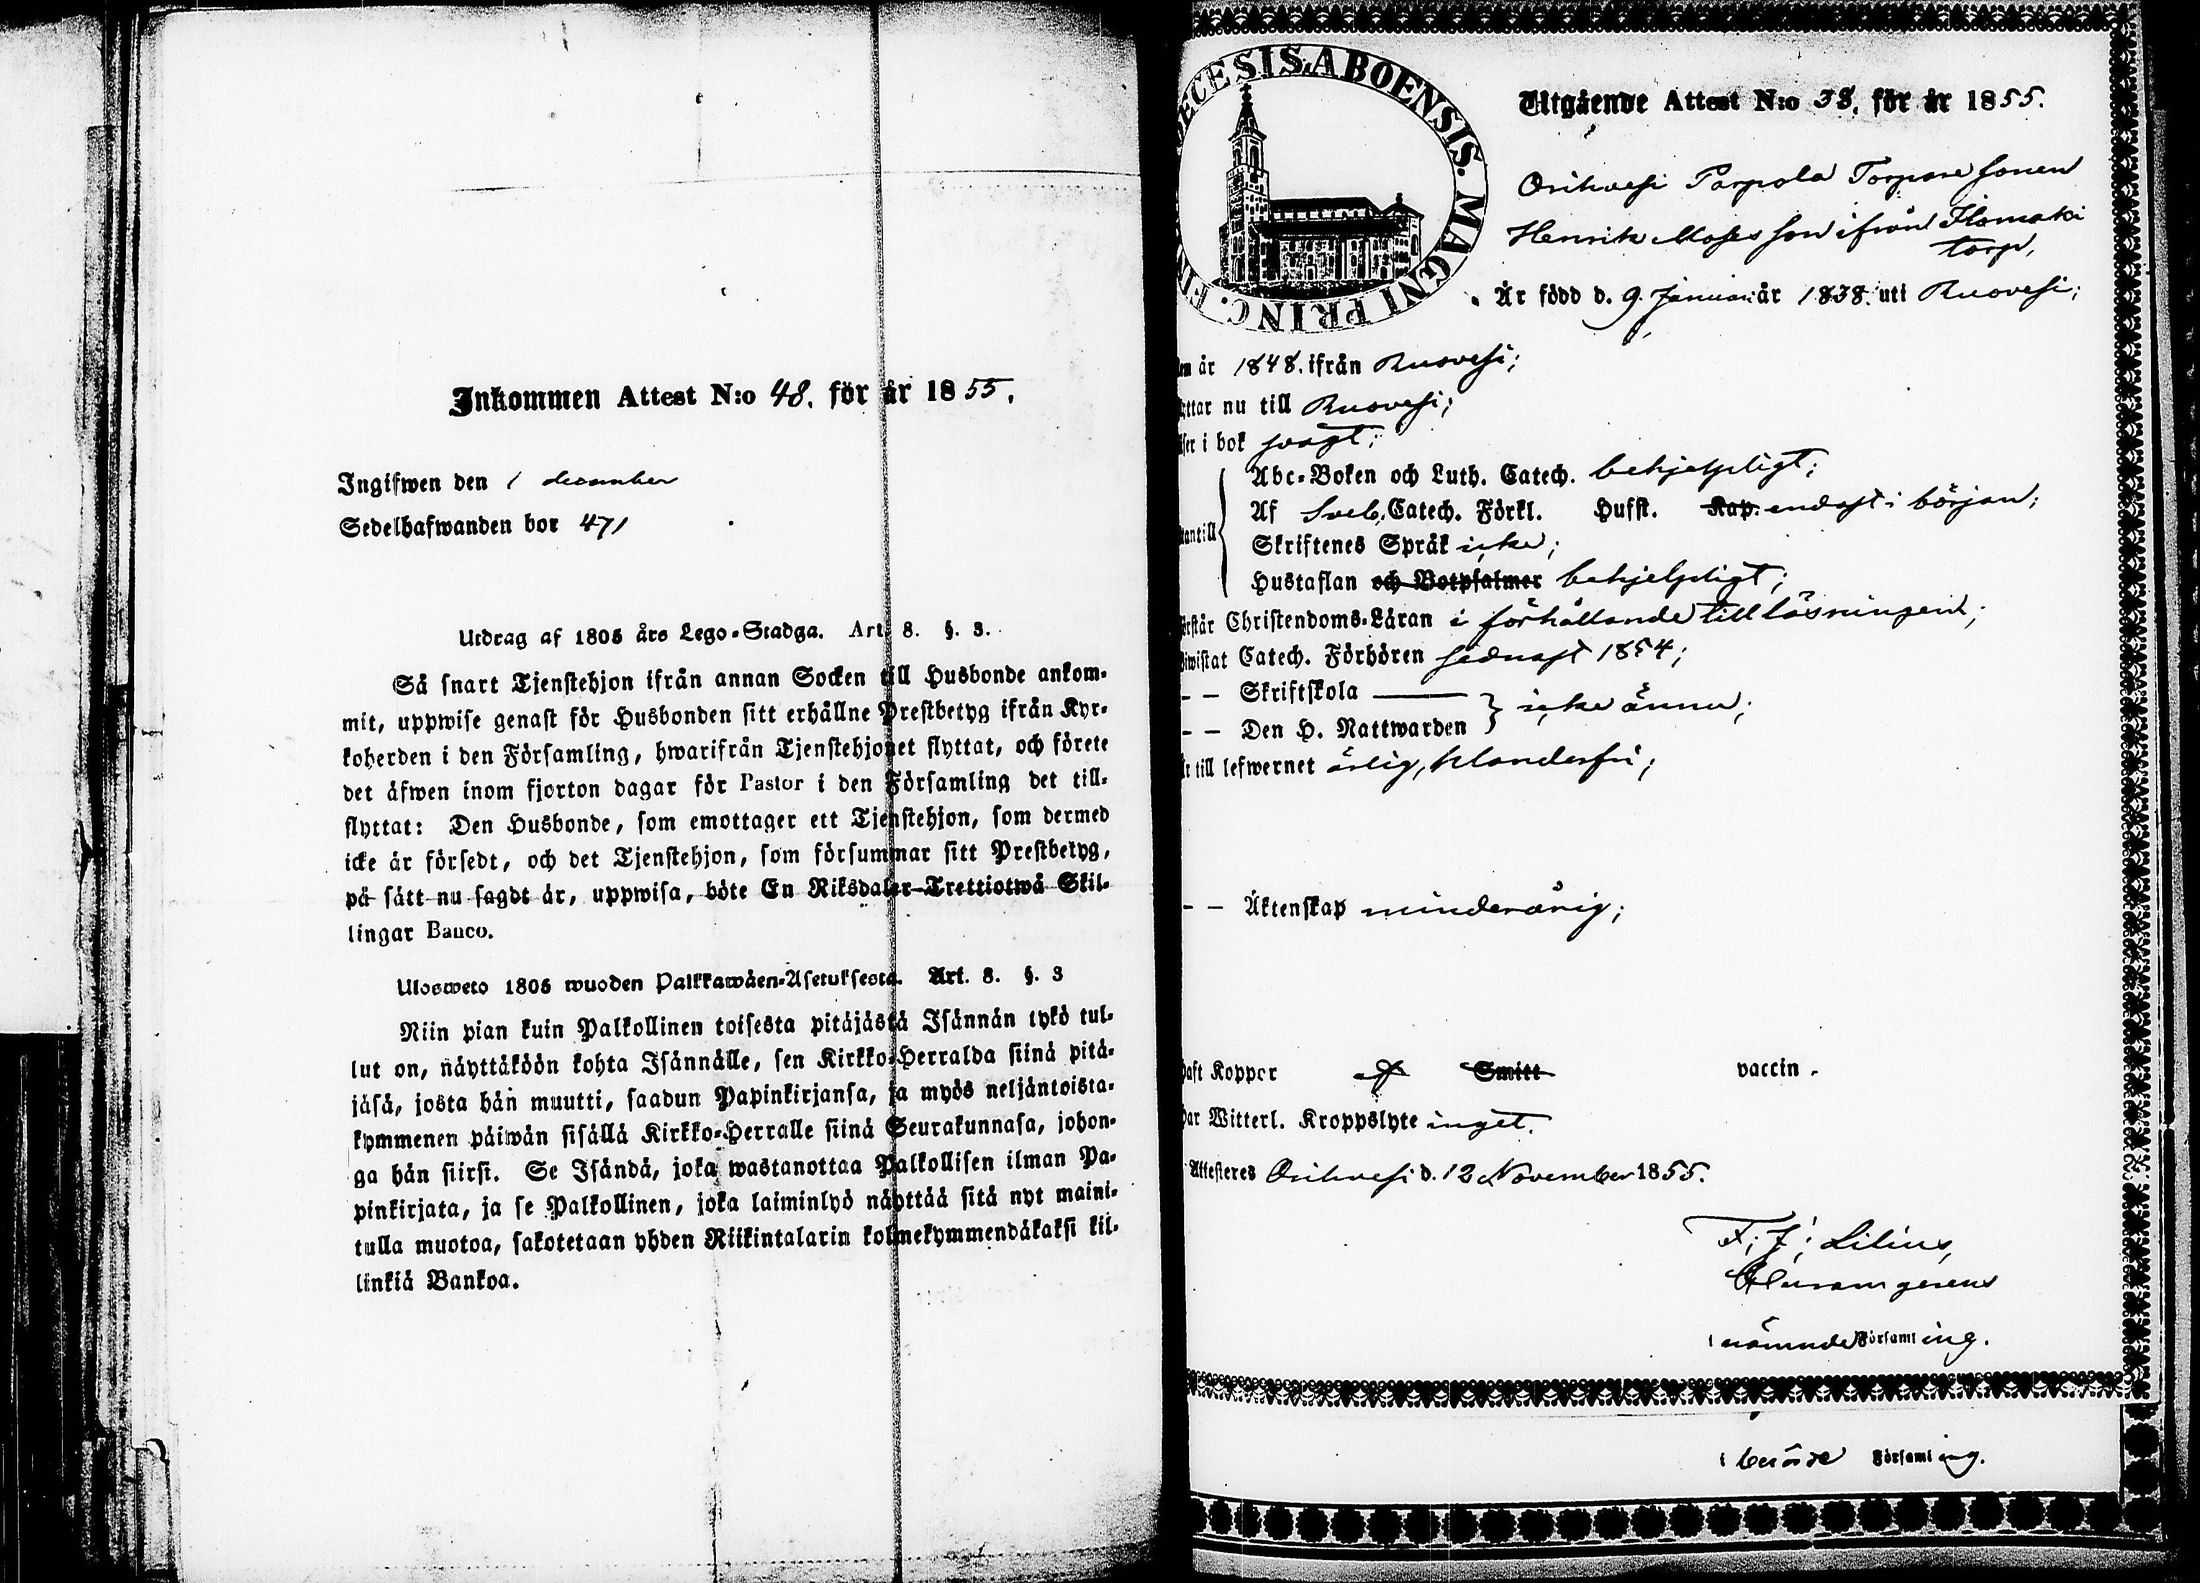 Inkommen Attest N:o 48. för år 1855.
Ingifwen den 1 december
Sedelhafwanden bor 471
Utdrag af 1805 års Lego-Stadga. Art. 8. §. 3.
Så snart Tjenstehjon ifrån annan Socken till Husbonde ankom-
mit, uppwise genast för Husbonden sitt erhållne Prestbetyg ifrån Kyr-
koherden i den Församling, hwarifrån Tjenstehjonet flyttat, och förete
det äfwen inom fjorton dagar för Pastor i den Församling det till-
flyttat: Den Husbonde, som emottager ett Tjenstehjon, som dermed
icke är försedt, och det Tjenstehjon, som försummar sitt Prestbetyg,
på sätt nu sagdt är, uppwisa, böte En Riksdaler Trettiotwå Skil-
lingar Banco.
Ulosweto 1805 wuoden Palkkawäen-Asetuksesta. Art. 8. §. 3
Niin pian kuin Palkollinen toisesta pitäjästä Isännän tykö tul-
lut on, näyttäköön kohta Isännälle, sen Kirkko-Herralda siinä pitä-
jäsä, josta hän muutti, saadun Papinkirjansa, ja myös neljäntoista-
kymmenen päiwän sisällä Kirkko-Herralle siinä Seurakunnasa, johon-
ga hän siirsi. Se Isändä, joka wastanottaa Palkollisen ilman Pa-
pinkirjata, ja se Palkollinen, joka laiminlyö näyttää sitä nyt maini-
tulla muotoa, sakotetaan yhden Riikintalarin kolmekymmendäkaksi kil-
linkiä Bankoa.
ECESIS ABOENSIS. MAGNI PRINC. FIN
Utgående Attest N:o 38. för år 1855.
Orihvesi Parpola Torparesonen
Henrik Mosesson ifrån
torp,
Är född d. 9. Januari år 1838. uti Ruovesi;
år 1848. ifrån Ruovesi;
nu till Ruovesi;
i bok svagt;
Abc-Boken och Luth. Catech. behjelpligt;
Af Sveb. Catech. Förkl. Husst. Kap. endast i början;
antill
Skriftenes Språk icke;
Hustaflan och Botpsalmer behjelpligt;
Christendoms-Läran i förhållande till läsningen;
wistat Catech. Förhören sednast 1854;
– – Skriftskola
– – Den H. Nattwarden icke ännu;
till lefwernet ärlig, klanderfri;
– – Äktenskap minderårig;
aft Koppor af Smitt vaccin.
ar Witterl. Kroppslyte inget.
Attesteres Orihvesi d. 12 November 1855.
F. J. Lilius,
Curam gerens
i nämnde Församling.
i berörde Församling.